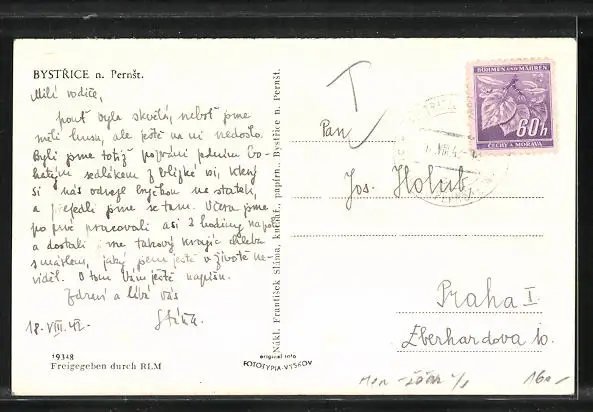 BYSTŘICE n. Pernšt.
Milí rodiče,
pouť byla skvělá, neboť jsme
měli husu, ale ještě na ni nedošlo.
Byli jsme totiž pozváni jedním bo-
hatým sedlákem z blízké vsi, který
si nás odveze bryčkou na statek,
a přejedli jsme se tam. Včera jsme
po prvé pracovali asi 3 hodiny na poli
a dostali jsme takový krajíc chleba
s máslem, jaký jsem ještě v životě ne-
viděl. O tom Vám ještě napíšu.
Zdraví a líbá vás
18. VIII. 42.
19348
Freigegeben durch RLM
Nákl. František Sláma, knihař., papírn., Bystřice n. Pernšt.
original foto
FOTOTYPIA-VYŠKOV
BÖHMEN UND MÄHREN
60h
ČECHY A MORAVA
T
Pan
Jos. Holub
Praha I
Eberhardova 10.
160,-